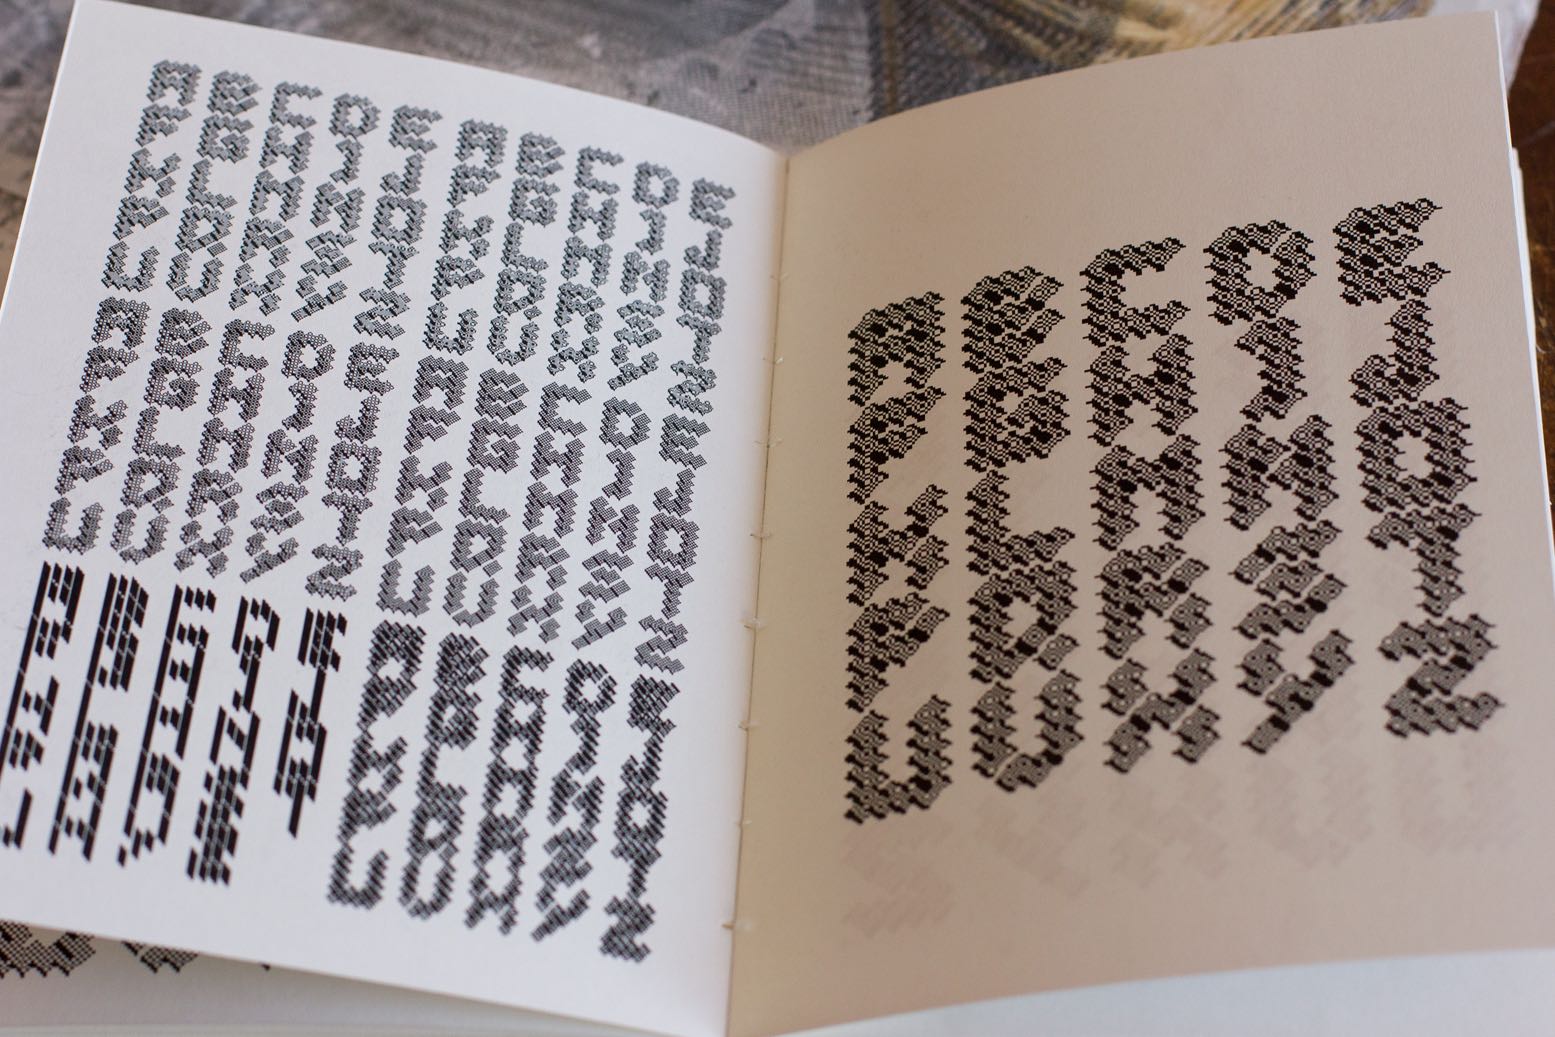 A B C D E
F G H I J
K L M N O
P Q R S T
U V X Y Z
A B C D E
F G H I J
K L M N O
P Q R S T
U V X Y Z
A B C D E
F G H I J
K L M N O
P Q R S T
U V X Y Z
A B C D E
F G H I J
K L M N O
P Q R S T
U V X Y Z
A B C D E
F G H I J
A B C D E
F G H I J
K L M N O
P Q R S T
U V X Y Z
A B C D E
F G H I J
K L M N O
P Q R S T
U V X Y Z